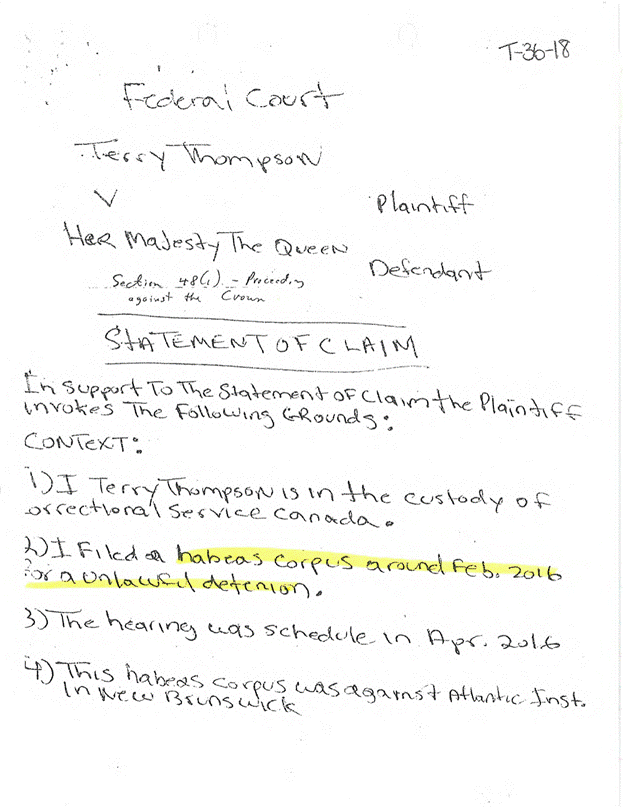 T-36-18
Federal Court
Terry Thompson
V
Plaintiff
Her Majesty The Queen
Defendant
Section 48(1) - Proceeding
against the Crown
STATEMENT OF CLAIM
In support To The Statement of Claim the Plaintiff
invokes The Following Grounds:
CONTEXT:
1) I Terry Thompson is in the custody of
orrectional Service Canada.
2) I Filed a habeas corpus around Feb. 2016
For a unlawful detenion.
3) The hearing was schedule in Apr. 2016
4) This habeas corpus was against Atlantic Inst.
In New Brunswick